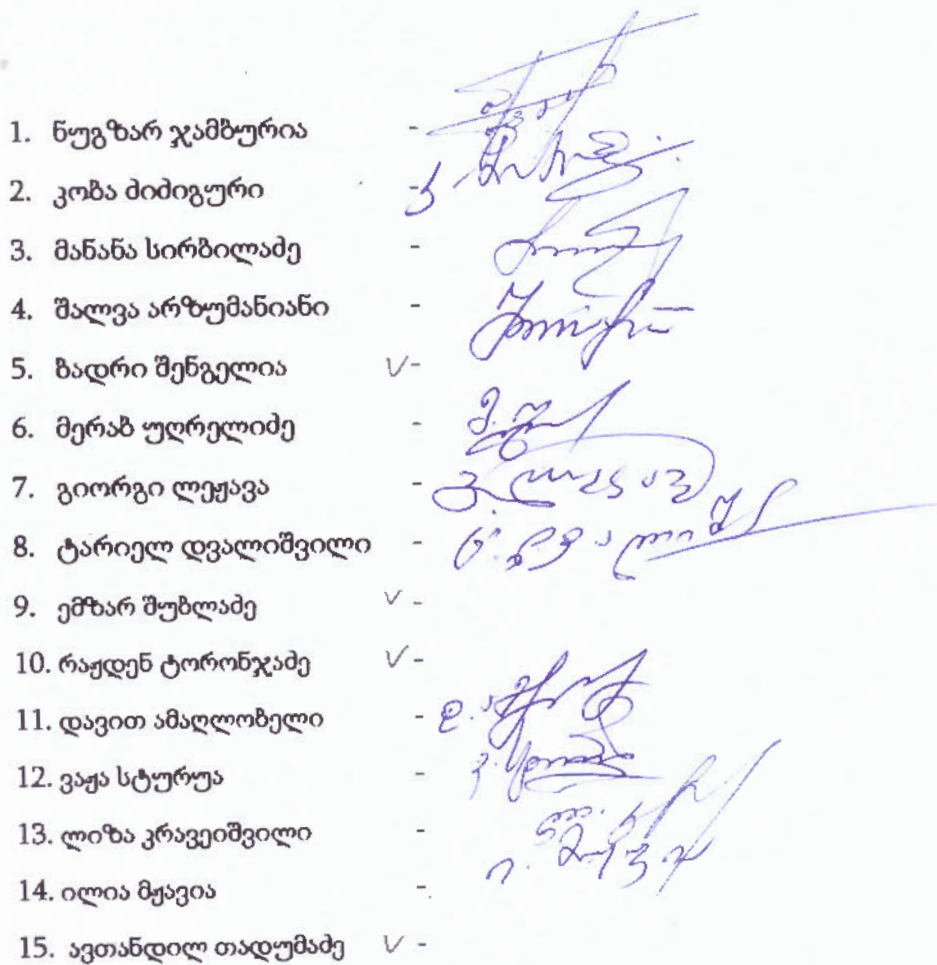 1. ნუგზარ ჯამბურია -
2. კობა ძიძიგური -
3. მანანა სირბილაძე -
4. შალვა არზუმანიანი -
5. ბადრი შენგელია V -
6. მერაბ უღრელიძე -
7. გიორგი ლეჟავა -
8. ტარიელ დვალიშვილი -
9. ემზარ შუბლაძე V -
10. რაჟდენ ტორონჯაძე V -
11. დავით ამაღლობელი -
12. ვაჟა სტურუა -
13. ლიზა კრავეიშვილი -
14. ილია მჟავია -
15. ავთანდილ თადუმაძე V -